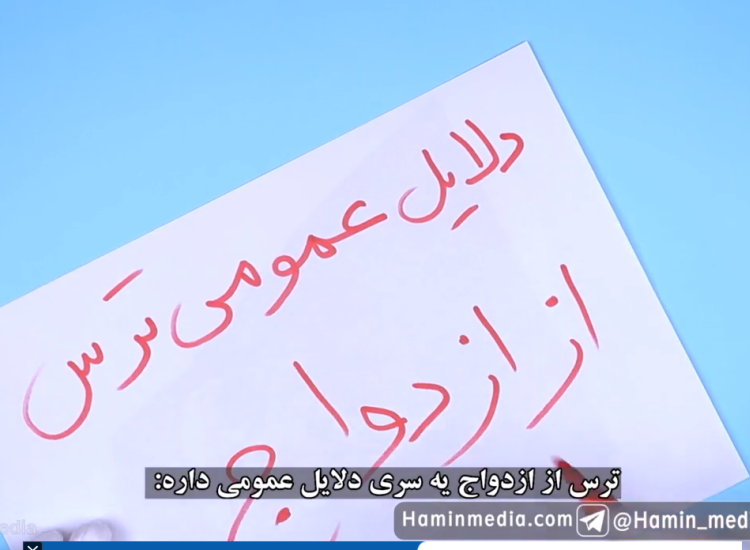 دلایل عمومی ترس
از ازدواج
ترس از ازدواج یه سری دلایل عمومی داره:
Haminmedia.com @Hamin_med
edia